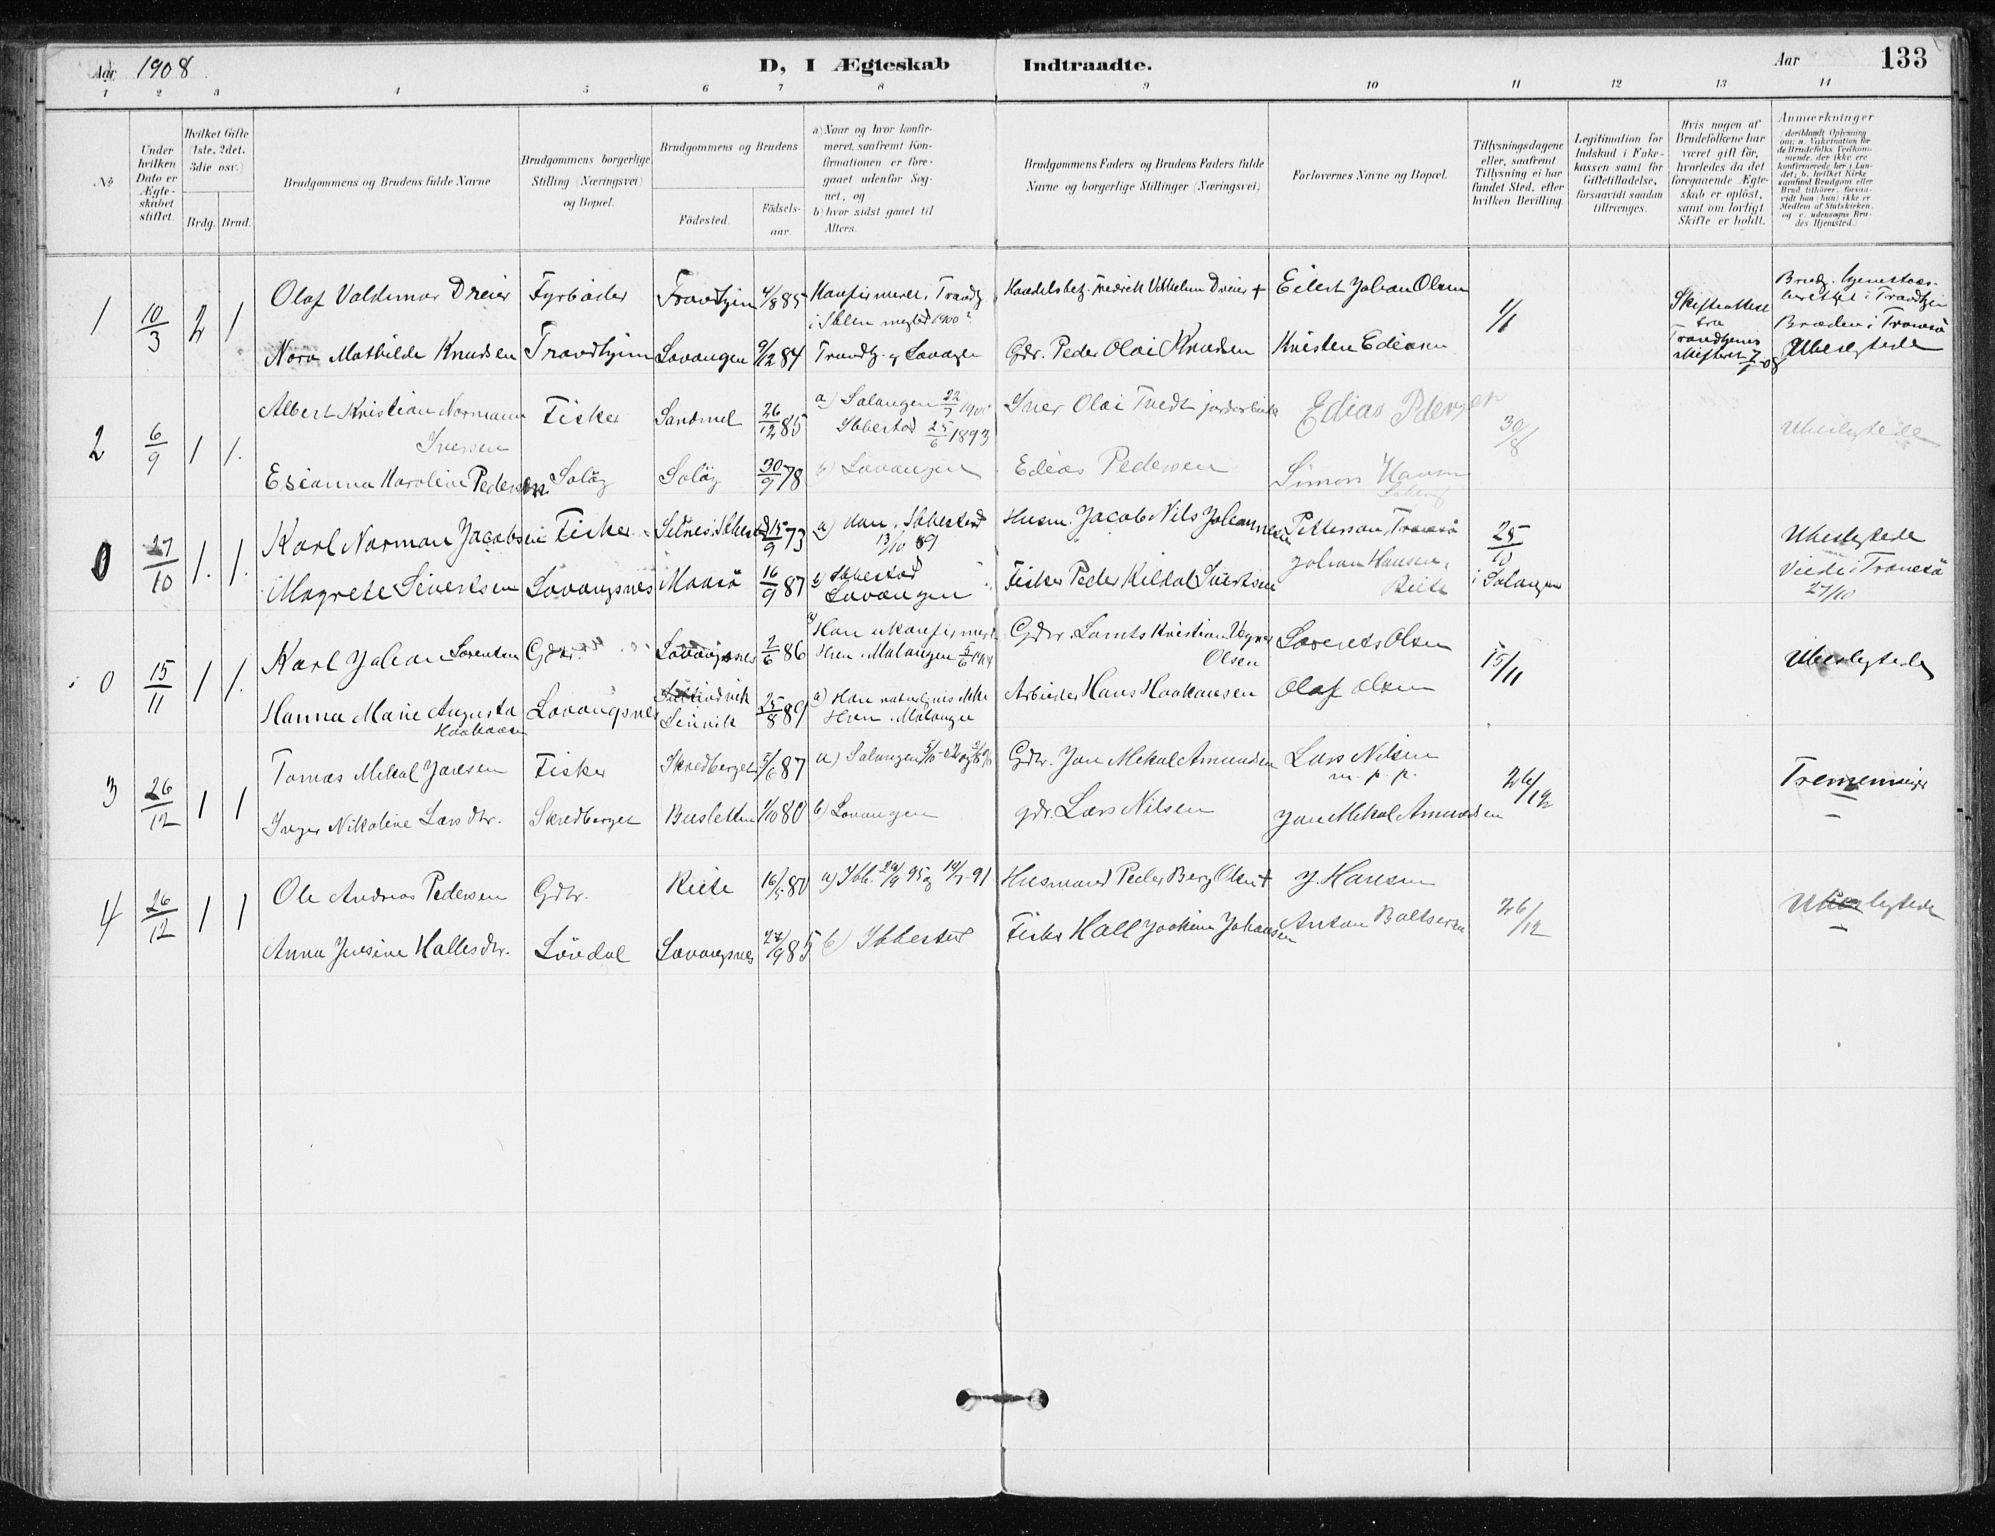 Aar 1908
D, I Ægteskab Indtraadte.
Aar
133
1 2 3 4 5 6 7 8 9 10 11 12 13 14
No
Under hvilken Dato er Ægteskabet stiftet.
Hvilket Gifte (1ste, 2det, 3die osv.)
Brdg. Brud.
Brudgommens og Brudens fulde Navne
Brudgommens borgerlige Stilling (Næringsvei) og Bopæl.
Brudgommens og Brudens
Fødested.
Fødselsaar.
a) Naar og hvor konfirmeret, saafremt Konfirmationen er foregaaet udenfor Sognet, og
b) hvor sidst gaaet til Alters.
Brudgommens Faders og Brudens Faders fulde Navne og borgerlige Stillinger (Næringsvei)
Forlovernes Navne og Bopæl.
Tillysningsdagene eller, saafremt Tillysning ei har fundet Sted, efter hvilken Bevilling.
Legitimation for Indskud i Fækassen samt for Giftetilladelse, forsaavidt saadan tiltrænges.
Hvis nogen af Brudefolkene har været gift før, hvorledes da det foregaaende Ægteskab er opløst, samt om lovligt Skifte er holdt.
Anmerkninger
1 10/3 2 1
Olaf Valdemar Dreier Fyrbøder Trondhjem 4/8 85 Konfirmeret i Trondhj.
Handelsbetj. Fredrik Vilhelm Dreier + Eilert Johan Olsen
1/1
Skifteattest fra Trondhjems skifteret 7/1 08
Nora Mathilde Knudsen Trondhjem Lavangen 9/12 84 Trondhj. og Lavangen
Gdr. Peder Olai Knudsen Kristen Ediasen
Bruden i Tromsø
Ubeslegtede
2 6/9 1 1.
Albert Kristian Normann Iversen Fisker Sandmel 26/12 85 a) Salangen 22/7 1900
Ibbestad 25/6 1893
Iver Olai Tvedt jordarbeider Edias Pedersen
30/8
Ubeslegtede
Esianna Karoline Pedersen Soløy Soløy 30/9 78 b) Lavangen
Edias Pedersen Simon Hansen
0 27/10 1. 1.
Karl Norman Jacobsen Fisker 15/9 73 a) Han i Ibbestad 13/10 89
Husm. Jacob Nils Johannesen Pettersen, Tromsø
25/10 i Salangen
Ubeslegtede
Viede i Tromsø 27/10
Magrete Sivertsen Lavangsnes Maasø 16/9 87 b) Ibbestad Lavangen
Fisker Peder Kildal Sivertsen Johan Hansen,
0 15/11 1 1.
Karl Johan Sørensen Gdbr. Lavangsnes 2/6 86 a) Han ukonfirmert
Hun i Malangen 5/6 1904
Gdbr. Lornts Kristian Wagner Olsen Lorents Olsen
15/11
Ubeslegtede
Hanna Marie Augusta Haakonsen Lavangsnes Sinvik 25/8 89 a) Han naturligvis ikke
Hun i Malangen
Arbeider Hans Haakonsen Olaf Olsen
3 26/12 1 1
Tomas Mikal Jansen Fisker Skredberget 5/6 87 a) Salangen
Gdbr. Jon Mikal Amundsen Lars Nilsen
m. p. p.
26/12
Tremenninger
Inger Nikoline Larsdtr. Skredberget Busletten 1/10 80 b) Lavangen
gdr. Lars Nilsen Jon Mikal Amundsen
4 26/12 1 1
Ole Andreas Pedersen Gdbr. 16/5 80 a) Ibb. 29/9 95 og 19/7 91
Husmand Peder Berg Olsen + J. Hansen
26/12
Ubeslegtede
Anna Jensine Hallesdtr. Løvdal Lavangsnes 27/9 85 b) Ibbestad
Fisker Hall Joakim Johansen Anton Baltsersen